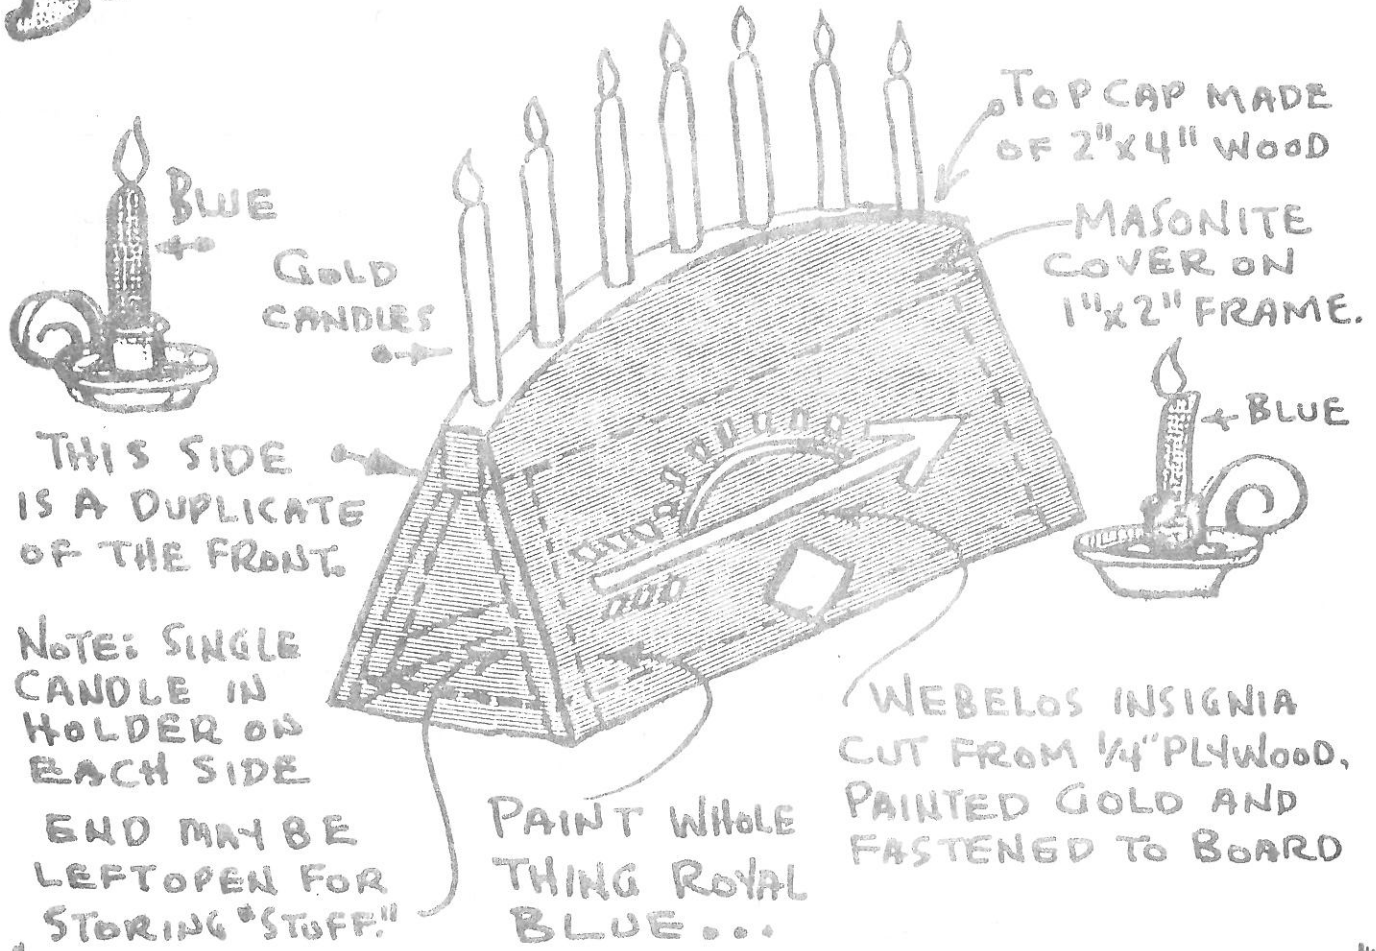 TOP CAP MADE
OF 2"X4" WOOD
BLUE
MASONITE
COVER ON
1"X2" FRAME.
GOLD
CANDLES
BLUE
THIS SIDE
IS A DUPLICATE
OF THE FRONT.
NOTE: SINGLE
CANDLE IN
HOLDER ON
EACH SIDE
END MAY BE
LEFT OPEN FOR
STORING "STUFF."
PAINT WHOLE
THING ROYAL
BLUE...
WEBELOS INSIGNIA
CUT FROM 1/4" PLYWOOD,
PAINTED GOLD AND
FASTENED TO BOARD